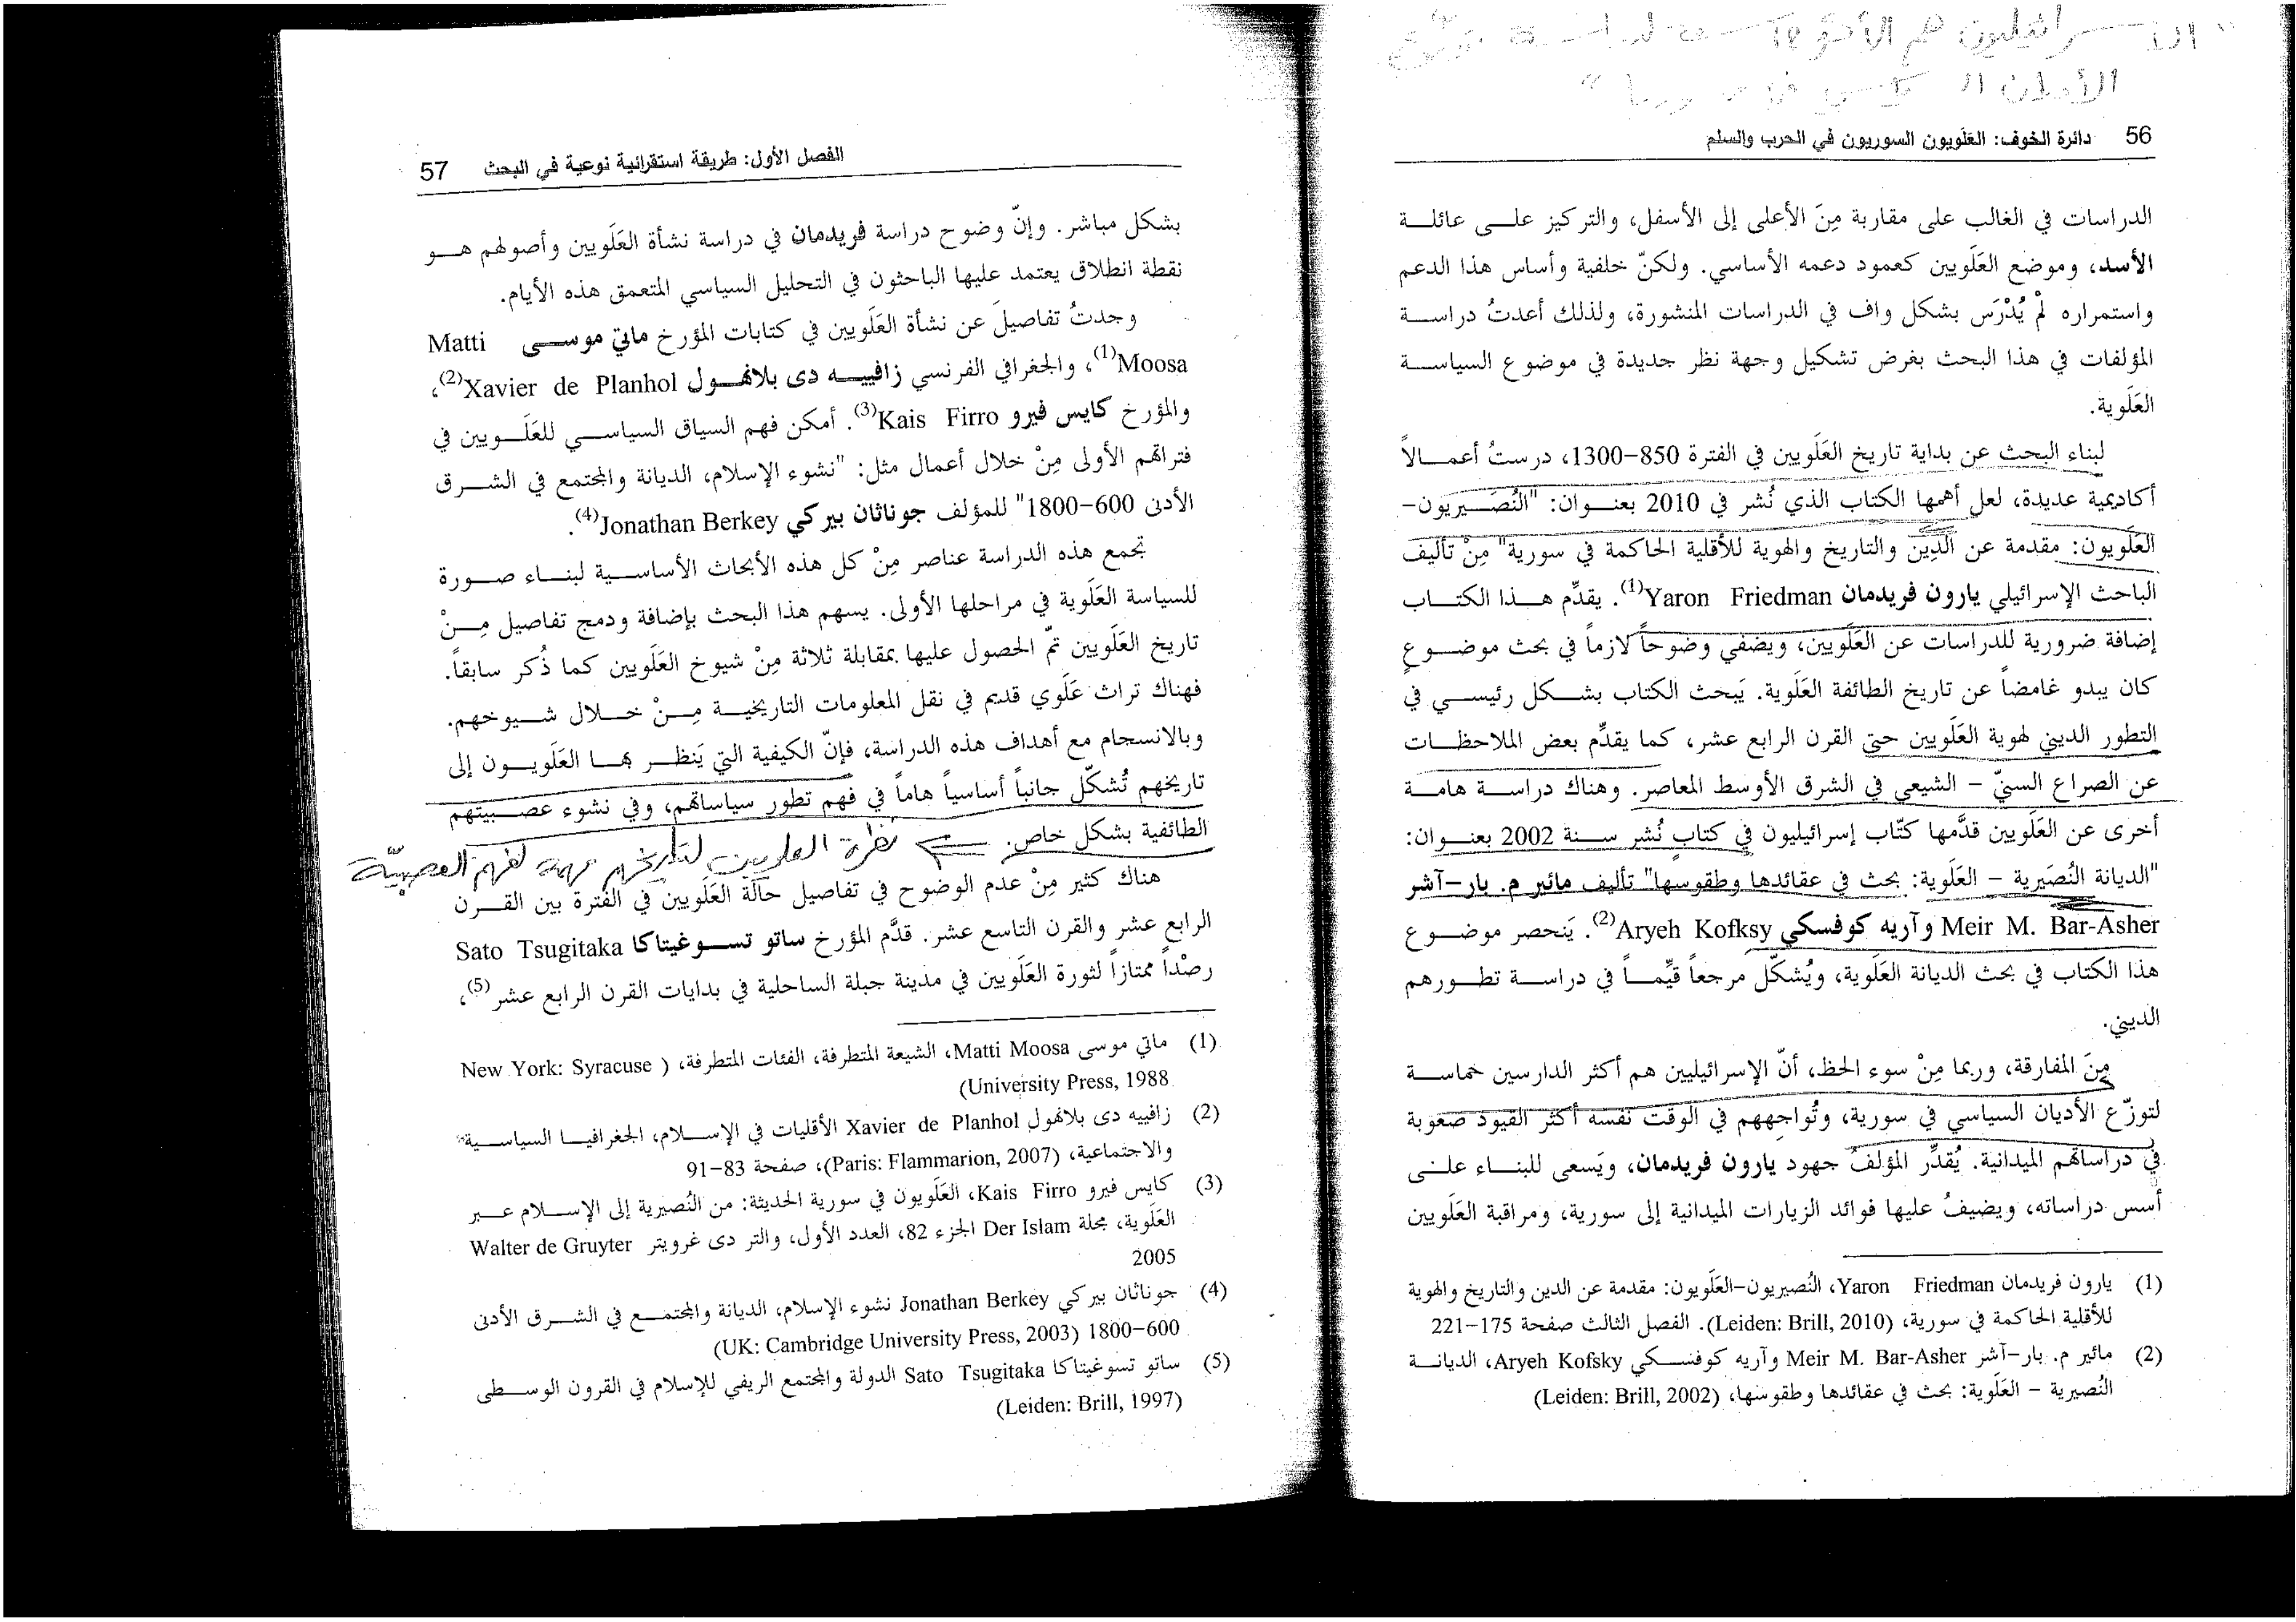 الإسرائيليون هم الأكثر
الأديان
56 دائرة الخوف: العَلَويون السوريون في الحرب والسلم
الدراسات في الغالب على مقاربة مِنَ الأعلى إلى الأسفل، والتركيز علــى عائلــة
الأسد، وموضع العَلَويين كعمود دعمه الأساسي. ولكنّ خلفية وأساس هذا الدعم
واستمراره لمْ يُدْرَس بشكل واف في الدراسات المنشورة، ولذلك أعدتُ دراســة
المؤلفات في هذا البحث بغرض تشكيل وجهة نظر جديدة في موضوع السياســة
العَلَوية.
لبناء البحث عن بداية تاريخ العَلَويين في الفترة 850–1300، درستُ أعمــالاً
أكاديمية عديدة، لعل أهمها الكتاب الذي نُشر في 2010 بعنــوان: "النُصَــيريون–
العَلَويون: مقدمة عن الدِين والتاريخ والهوية للأقلية الحاكمة في سورية" مِنْ تأليف
الباحث الإسرائيلي يارون فريدمان Yaron Friedman(1). يقدِّم هــذا الكتــاب
إضافة ضرورية للدراسات عن العَلَويين، ويضفي وضوحاً لازماً في بحث موضــوع
كان يبدو غامضاً عن تاريخ الطائفة العَلَوية. يَبحث الكتاب بشــكل رئيســي في
التطور الديني لهوية العَلَويين حتى القرن الرابع عشر، كما يقدِّم بعض الملاحظــات
عن الصراع السنيّ – الشيعي في الشرق الأوسط المعاصر. وهناك دراســة هامــة
أخرى عن العَلَويين قدَّمها كتّاب إسرائيليون في كتاب نُشر ســنة 2002 بعنــوان:
"الديانة النُصَيرية – العَلَوية: بحث في عقائدها وطقوسها" تأليف مائير م. بار–آشر
Meir M. Bar-Asher وآريه كوفسكي Aryeh Kofksy(2). يَنحصر موضــوع
هذا الكتاب في بحث الديانة العَلَوية، ويُشكِّل مرجعاً قيِّمــاً في دراســة تطــورهم
الديني.
مِنَ المفارقة، وربما مِنْ سوء الحظ، أنّ الإسرائيليين هم أكثر الدارسين حماســة
لتوزّع الأديان السياسي في سورية، وتُواجههم في الوقت نفسه أكثر القيود صعوبة
في دراساتهم الميدانية. يُقدِّر المؤلفُ جهود يارون فريدمان، ويَسعى للبنــاء علــى
أسس دراساته، ويضيفُ عليها فوائد الزيارات الميدانية إلى سورية، ومراقبة العَلَويين
(1) يارون فريدمان Yaron Friedman، النُصيريون–العَلَويون: مقدمة عن الدين والتاريخ والهوية
للأقلية الحاكمة في سورية، (Leiden: Brill, 2010). الفصل الثالث صفحة 175–221
(2) مائير م. بار–آشر Meir M. Bar-Asher وآريه كوفســكي Aryeh Kofsky، الديانــة
النُصيرية – العَلَوية: بحث في عقائدها وطقوسها، (Leiden: Brill, 2002)
الفصل الأول: طريقة استقرائية نوعية في البحث 57
بشكل مباشر. وإنّ وضوح دراسة فريدمان في دراسة نشأة العَلَويين وأصولهم هــو
نقطة انطلاق يعتمد عليها الباحثون في التحليل السياسي المتعمق هذه الأيام.
وجدتُ تفاصيلَ عن نشأة العَلَويين في كتابات المؤرخ ماتي موســى Matti
Moosa(1)، والجغرافي الفرنسي زافييــه دى بلانهــول Xavier de Planhol(2)،
والمؤرخ كايس فيرو Kais Firro(3). أمكن فهم السياق السياســي للعَلَــويين في
فتراتهم الأولى مِنْ خلال أعمال مثل: "نشوء الإسلام، الديانة والمجتمع في الشــرق
الأدنى 600–1800" للمؤلف جوناثان بيركي Jonathan Berkey(4).
تجمع هذه الدراسة عناصر مِنْ كل هذه الأبحاث الأساســية لبنــاء صــورة
للسياسة العَلَوية في مراحلها الأولى. يسهم هذا البحث بإضافة ودمج تفاصيل مِــنْ
تاريخ العَلَويين تمّ الحصول عليها بمقابلة ثلاثة مِنْ شيوخ العَلَويين كما ذُكر سابقاً.
فهناك تراث عَلَوي قديم في نقل المعلومات التاريخيــة مِــنْ خــلال شــيوخهم.
وبالانسجام مع أهداف هذه الدراسة، فإنّ الكيفية التي يَنظــر بهــا العَلَويــون إلى
تاريخهم تُشكّل جانباً أساسياً هاماً في فهم تطور سياساتهم، وفي نشوء عصــبيتهم
الطائفية بشكل خاص.
نظرة العلويين لتاريخهم مهمة لفهم العصبيّة
هناك كثير مِنْ عدم الوضوح في تفاصيل حالة العَلَويين في الفترة بين القــرن
الرابع عشر والقرن التاسع عشر. قدَّم المؤرخ ساتو تســوغيتاكا Sato Tsugitaka
رصْداً ممتازاً لثورة العَلَويين في مدينة جبلة الساحلية في بدايات القرن الرابع عشر(5)،
(1) ماتي موسى Matti Moosa، الشيعة المتطرفة، الفئات المتطرفة، (New York: Syracuse
University Press, 1988)
(2) زافييه دى بلانهول Xavier de Planhol الأقليات في الإســلام، الجغرافيــا السياســية
والاجتماعية، (Paris: Flammarion, 2007)، صفحة 83–91
(3) كايس فيرو Kais Firro، العَلَويون في سورية الحديثة: من النُصيرية إلى الإســلام عــبر
العَلَوية، مجلة Der Islam الجزء 82، العدد الأول، والتر دى غرويتر Walter de Gruyter
2005
(4) جوناثان بيركي Jonathan Berkey نشوء الإسلام، الديانة والمجتمــع في الشــرق الأدنى
600–1800 (UK: Cambridge University Press, 2003)
(5) ساتو تسوغيتاكا Sato Tsugitaka الدولة والمجتمع الريفي للإسلام في القرون الوســطى
(Leiden: Brill, 1997)